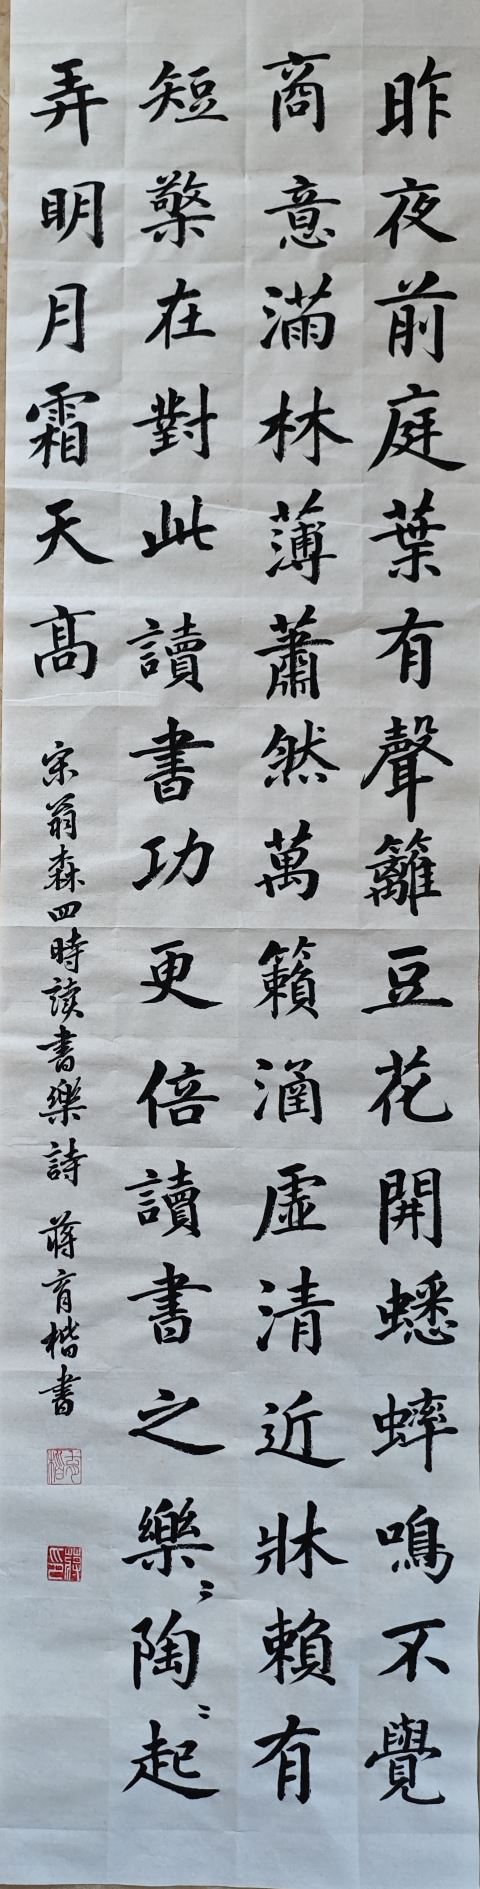 昨夜前庭葉有聲籬豆花開蟋蟀鳴不覺
商意滿林薄蕭然萬籟涵虛清近牀賴有
短檠在對此讀書功更倍讀書之樂〻陶〻起
弄明月霜天高
宋翁森四時读書樂詩 蔣育楷書